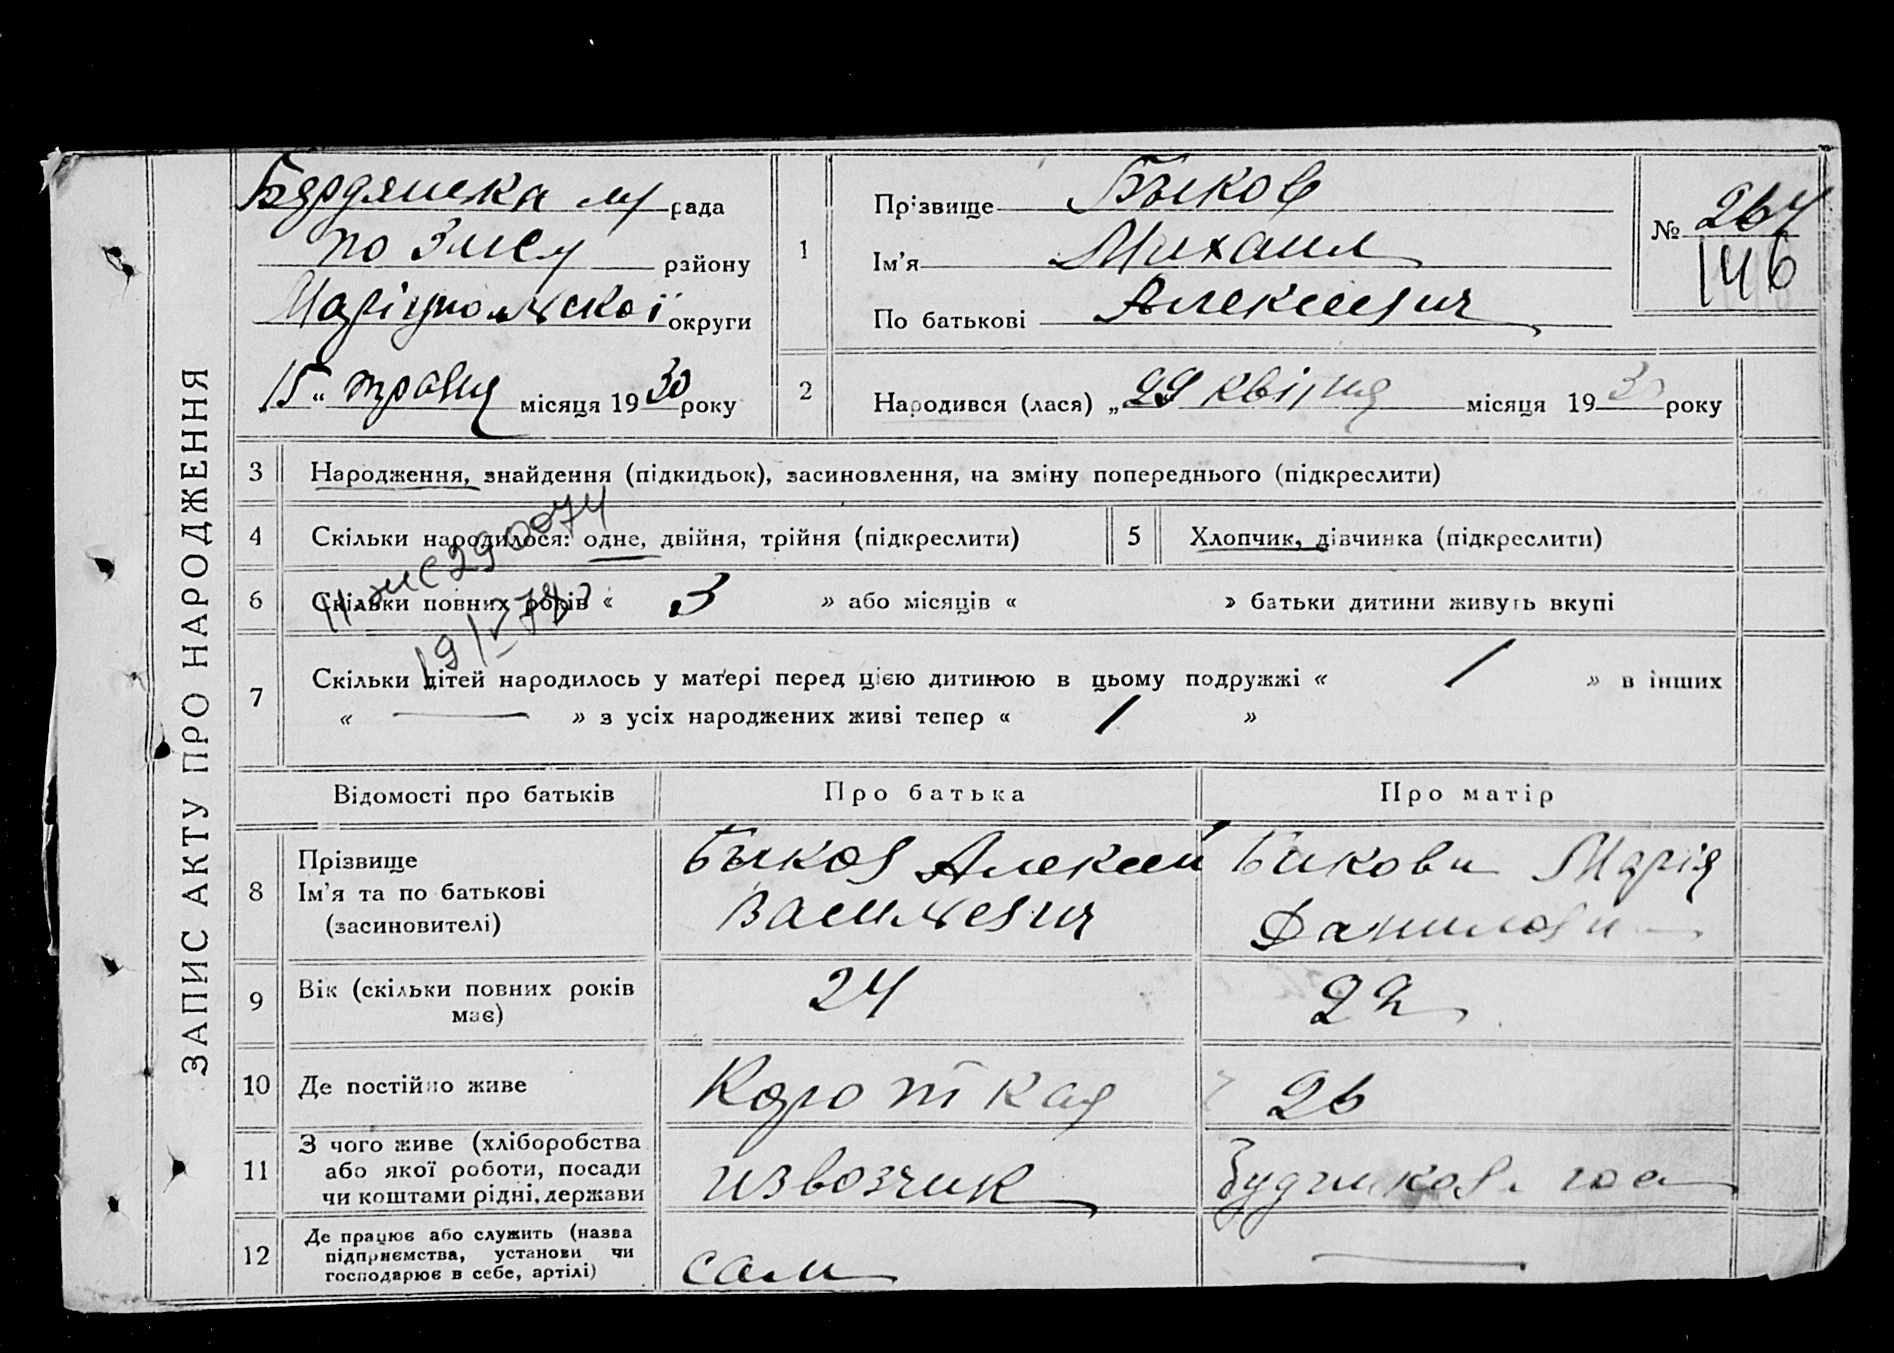 ЗАПИС АКТУ ПРО НАРОДЖЕННЯ
Бердянська м рада
по ЗАГСу району
Маріупольскої округи
15 „ травня місяця 1930 року
1
Прізвище Быков
Ім'я Михаил
По батькові Алексеевич
№ 267
146
2 Народився (лася) „29 квітня місяця 1930 року
3 Народження, знайдення (підкидьок), засиновлення, на зміну попереднього (підкреслити)
4 Скільки народилося: одне, двійня, трійня (підкреслити)
5 Хлопчик, дівчинка (підкреслити)
6 Скільки повних років « 3 » або місяців « » батьки дитини живуть вкупі
7 Скільки дітей народилось у матері перед цією дитиною в цьому подружжі « 1 » в інших
« — » з усіх народжених живі тепер « 1 »
Відомості про батьків Про батька Про матір
8 Прізвище
Ім'я та по батькові
(засиновителі)
Быков Алексей
Васильевич
Бикова Марія
Данилови
9 Вік (скільки повних років
має)
24
22
10 Де постійно живе
Короткая
26
11 З чого живе (хліборобства
або якої роботи, посади
чи коштами рідні, держави
извозчик
12 Де працює або служить (назва
підприємства, установи чи
господарює в себе, артілі)
сам
—